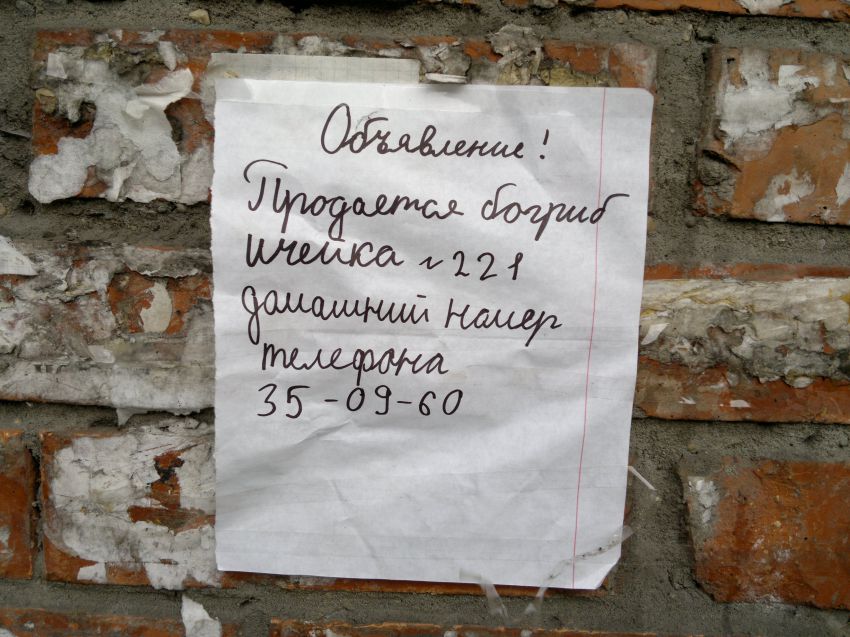 Объявление!
Продается богриб
ичейка ~ 221
дамашний намер
телефона
35-09-60